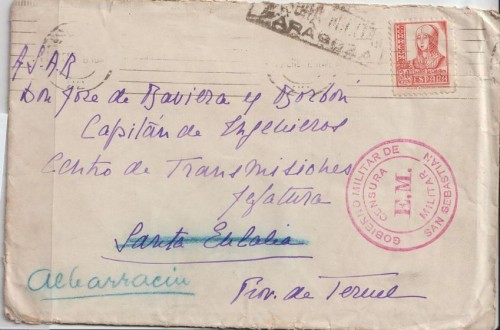 CENSURA MILITAR
ZARAGOZA
ESPAÑA
A.S.A.R
Don Jose de Baviera y Borbón
Capitán de Ingenieros
Centro de Transmisiones
Jefatura
Santa Eulalia
Albarracin
Prov. de Teruel
GOBIERNO MILITAR DE
SAN SEBASTIAN
CENSURA
E.M.
MILITAR